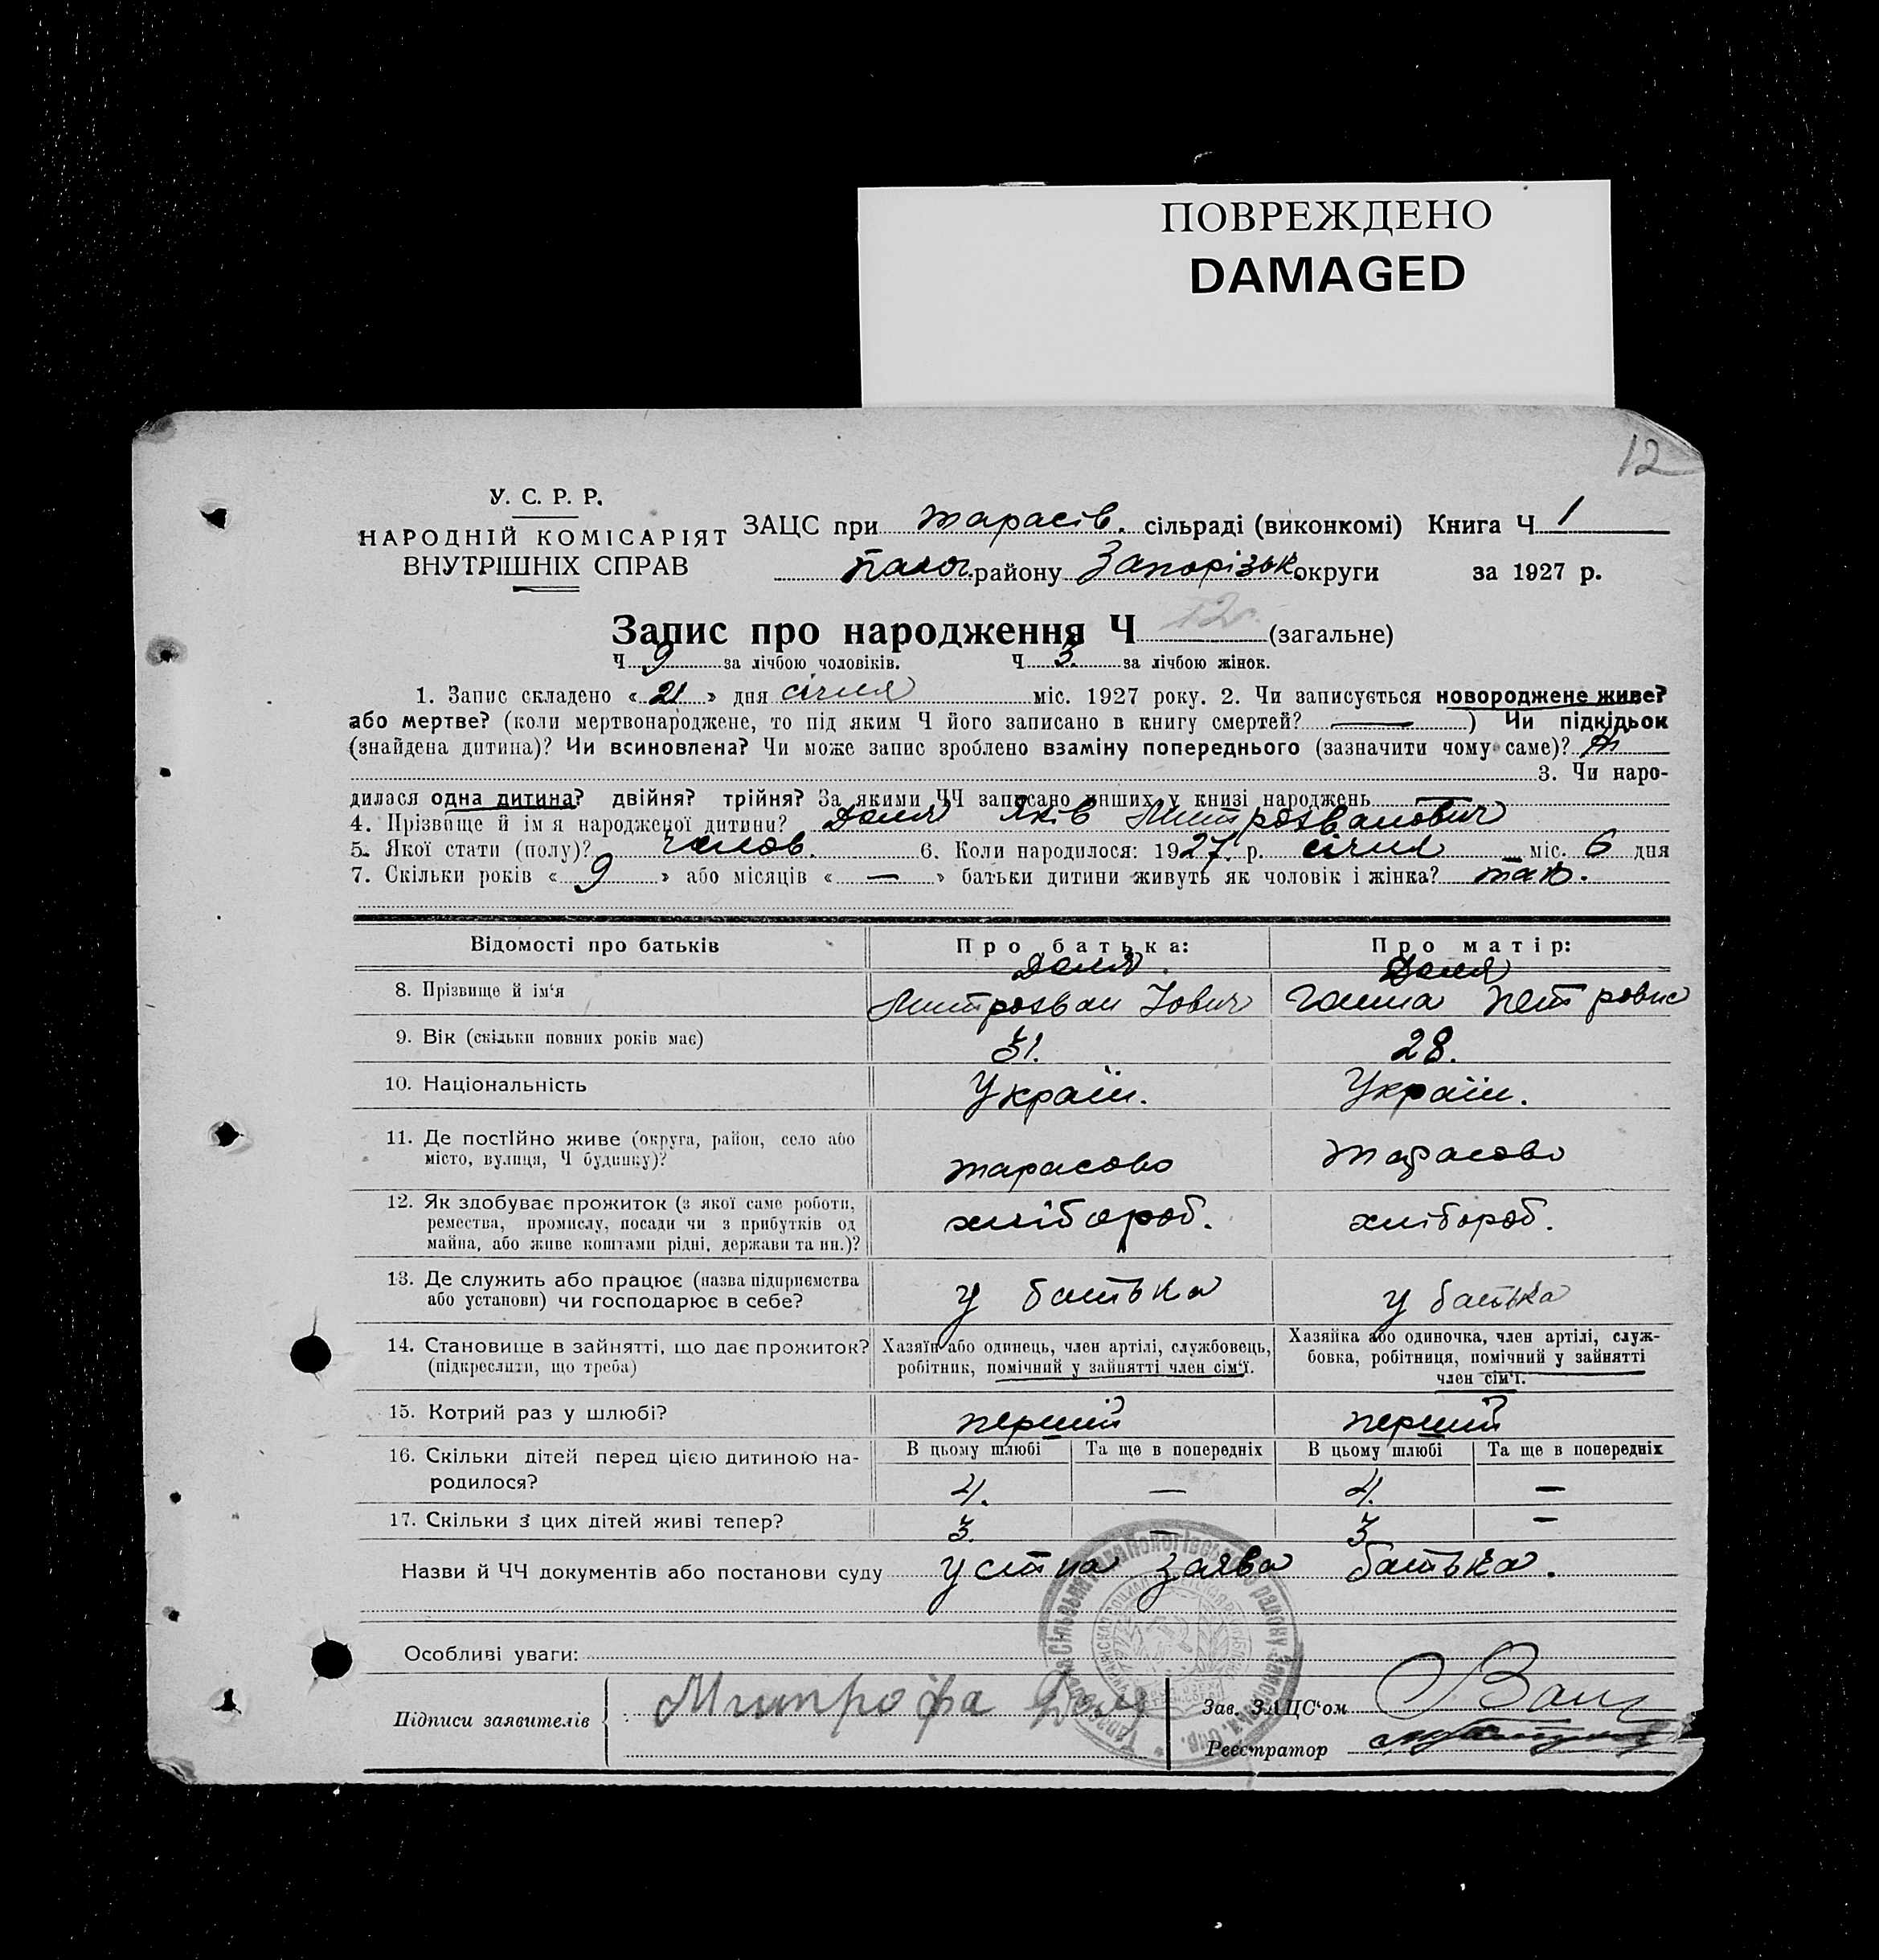 ПОВРЕЖДЕНО
DAMAGED
12
У. С. Р. Р.
НАРОДНІЙ КОМІСАРІЯТ
ВНУТРІШНІХ СПРАВ
ЗАЦС при Тарасів. сільраді (виконкомі) Книга Ч 1
Полог. району Запорізьк. округи за 1927 р.
Запис про народження Ч 12 (загальне)
Ч 9 за лічбою чоловіків. Ч 3. за лічбою жінок.
1. Запис складено « 21 » дня січня міс. 1927 року. 2. Чи записується новороджене живе?
або мертве? (коли мертвонароджене, то під яким Ч його записано в книгу смертей? — ) Чи підкідьок
(знайдена дитина)? Чи всиновлена? Чи може запис зроблено взаміну попереднього (зазначити чому саме)?
3. Чи наро-
дилася одна дитина? двійня? трійня? За якими ЧЧ записано инших у книзі народжень —
4. Прізвище й ім'я народженої дитини? Доля Яків Митрохванович
5. Якої стати (полу)? чолов. 6. Коли народилося: 1927. р. січня міс. 6 дня
7. Скільки років « 9 » або місяців « — » батьки дитини живуть як чоловік і жінка? так.
Відомості про батьків
Про батька:
Про матір:
8. Прізвище й ім'я
Доля
Митрохван Йович
Доля
Ганна Петровна
9. Вік (скільки повних років має)
31.
28.
10. Національність
Україн.
Україн.
11. Де постійно живе (округа, район, село або
місто, вулиця, Ч будинку)?
Тарасово
Тарасово
12. Як здобуває прожиток (з якої саме роботи,
ремества, промислу, посади чи з прибутків од
майна, або живе коштами рідні, держави та ин.)?
хлібороб.
хлібороб.
13. Де служить або працює (назва підприємства
або установи) чи господарює в себе?
у батька
у батька
14. Становище в зайнятті, що дає прожиток?
(підкреслити, що треба)
Хазяїн або одинець, член артілі, службовець,
робітник, помічний у зайнятті член сім'ї.
Хазяйка або одиночка, член артілі, служ-
бовка, робітниця, помічний у зайнятті
член сім'ї.
15. Котрий раз у шлюбі?
перший
перший
16. Скільки дітей перед цією дитиною на-
родилося?
В цьому шлюбі
Та ще в попередніх
В цьому шлюбі
Та ще в попередніх
4. — 4. —
17. Скільки з цих дітей живі тепер?
3. — 3 —
Назви й ЧЧ документів або постанови суду устна заява батька.
Особливі уваги:
Підписи заявителів Митрофа Доля
Зав. ЗАЦС'ом
Реєстратор